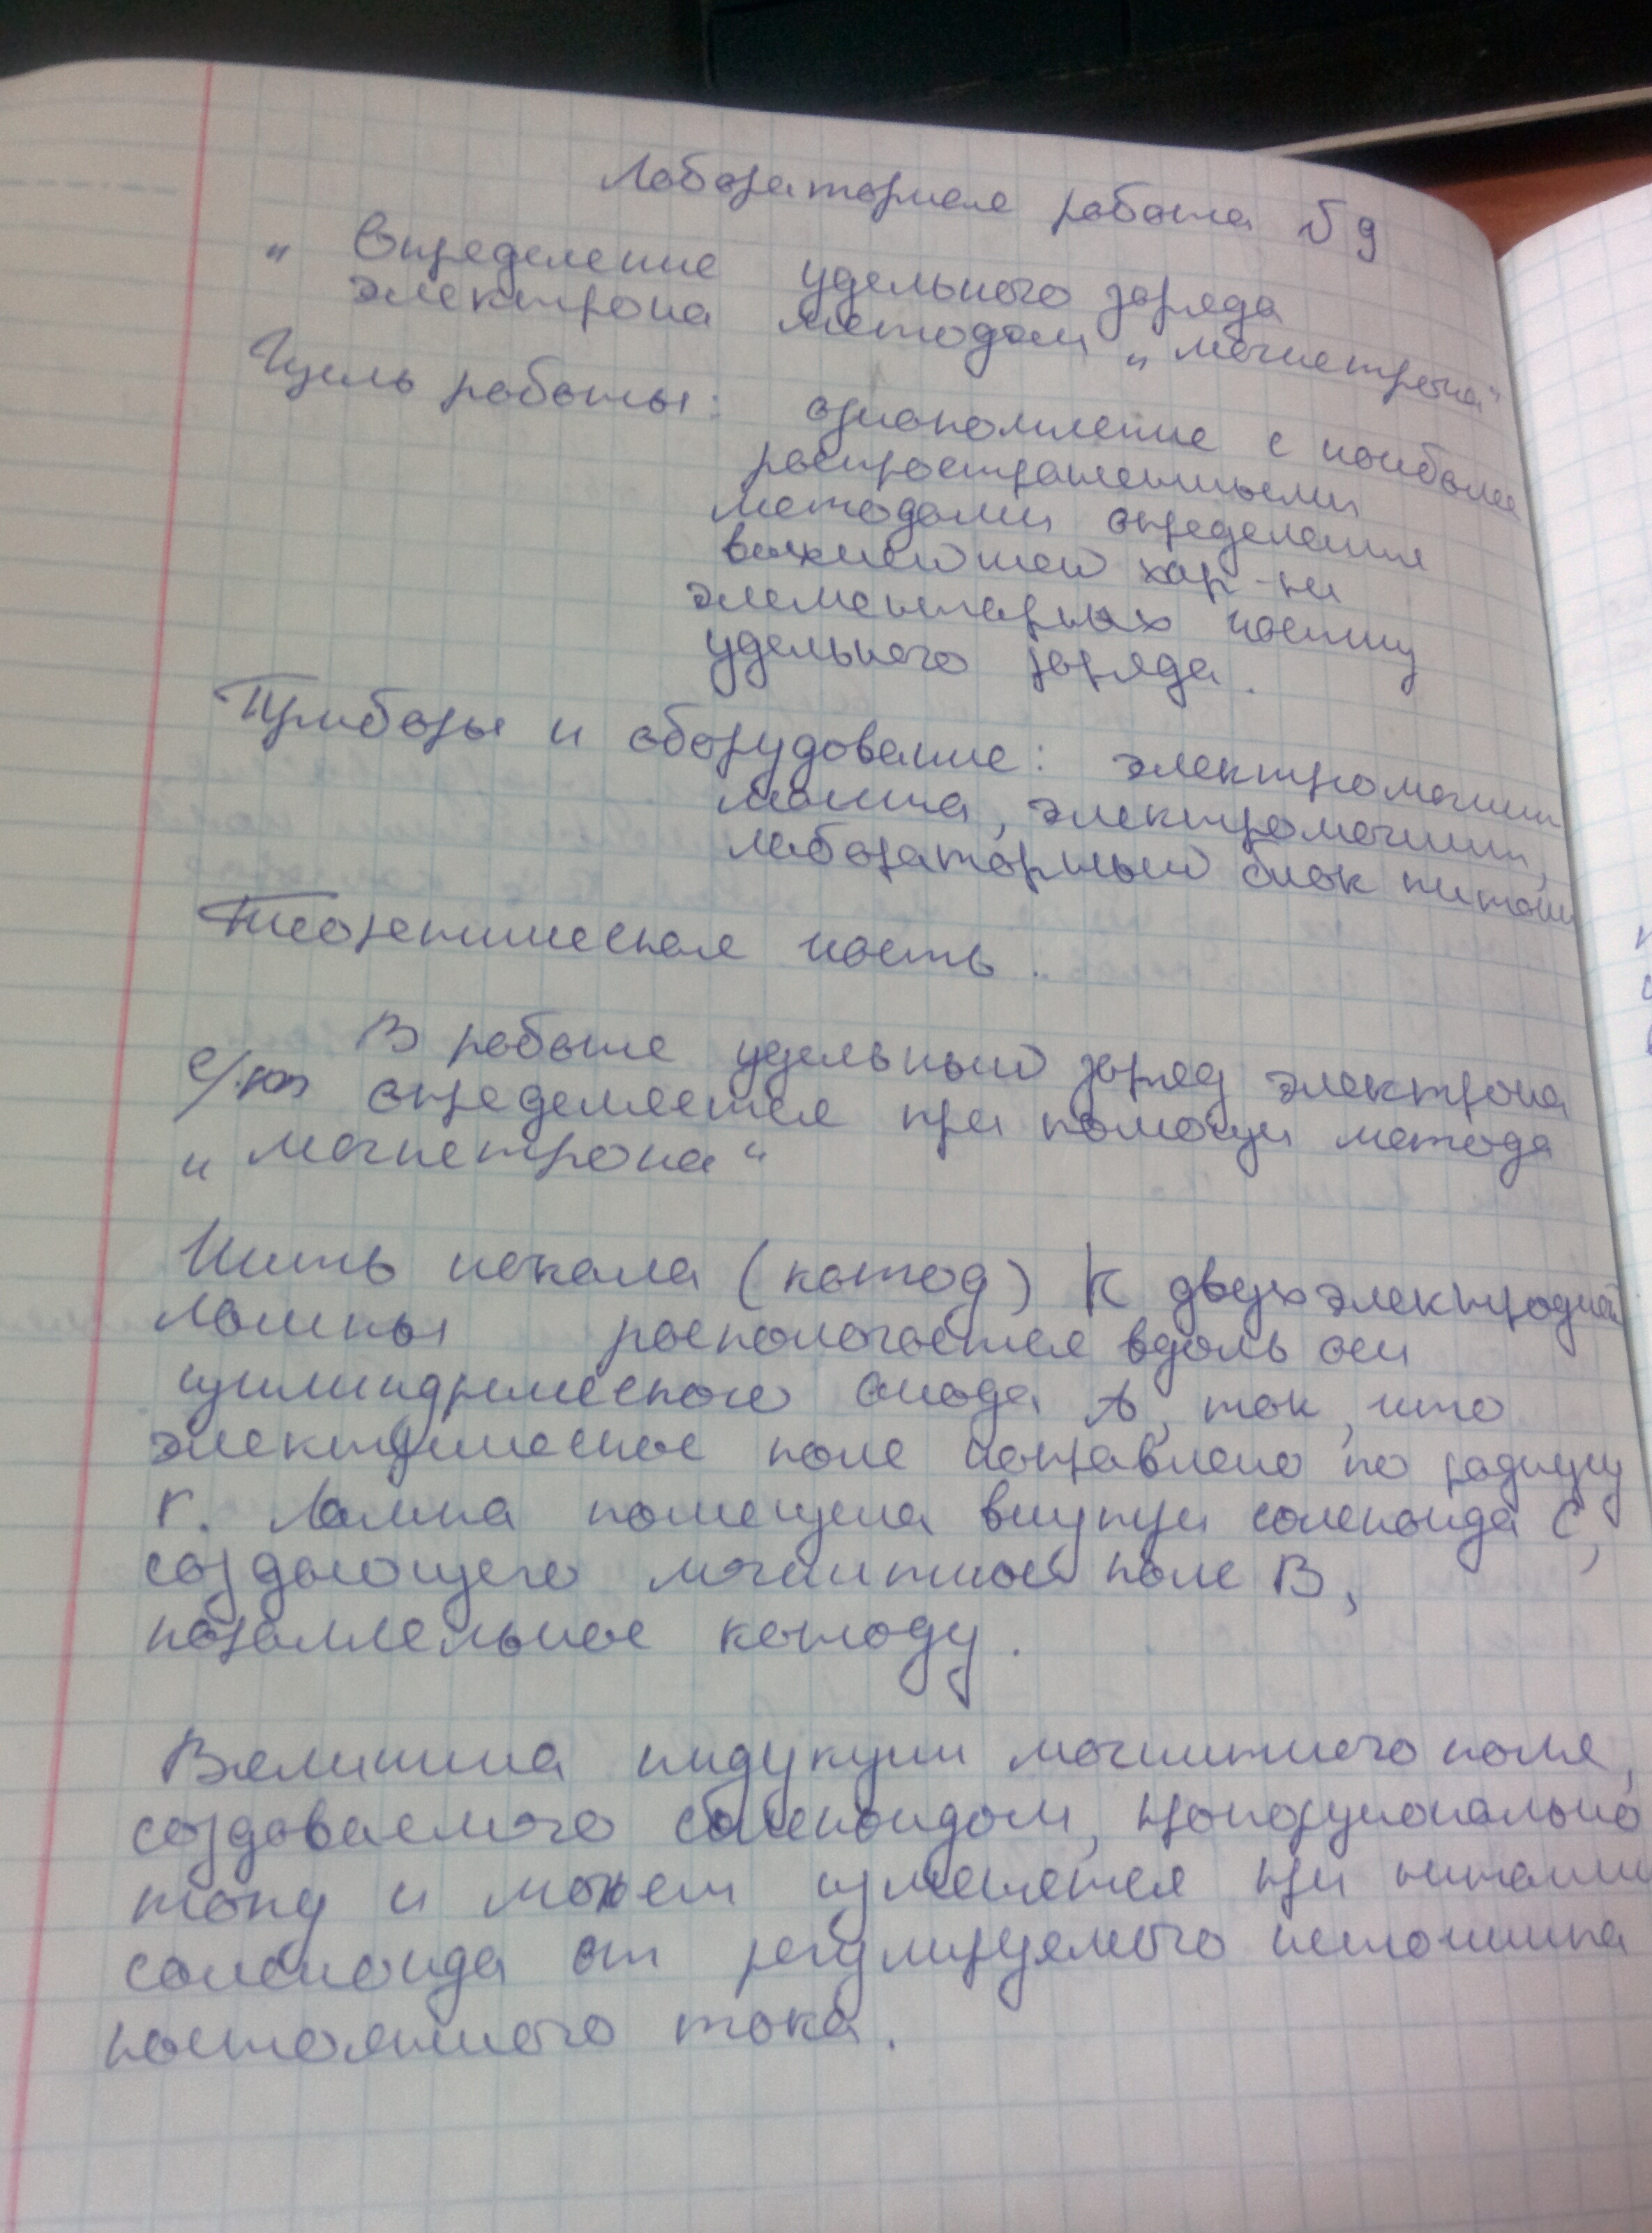 Лабораторная работа № 9
„ Определение удельного заряда
электрона методом „магнетрона“
Цель работы: ознакомление с наиболее
распространенными
методами определения
важнейшей хар-ки
элементарных частиц
удельного заряда.
Приборы и оборудование:
лампа,
лабораторный блок
Теоретическая часть.
В работе удельный заряд электрона
e/m определяется при помощи метода
„ магнетрона “
Нить накала (катод) К двухэлектродной
лампы располагается вдоль оси
цилиндрического анода А, так, что
электрическое поле направлено по радиусу
r. Лампа помещена внутри соленоида С,
создающего магнитное поле В,
параллельное катоду.
Величина индукции магнитного поля,
создаваемого соленоидом, пропорционально
току и может изменятся при питании
соленоида от регулируемого источника
постоянного тока.